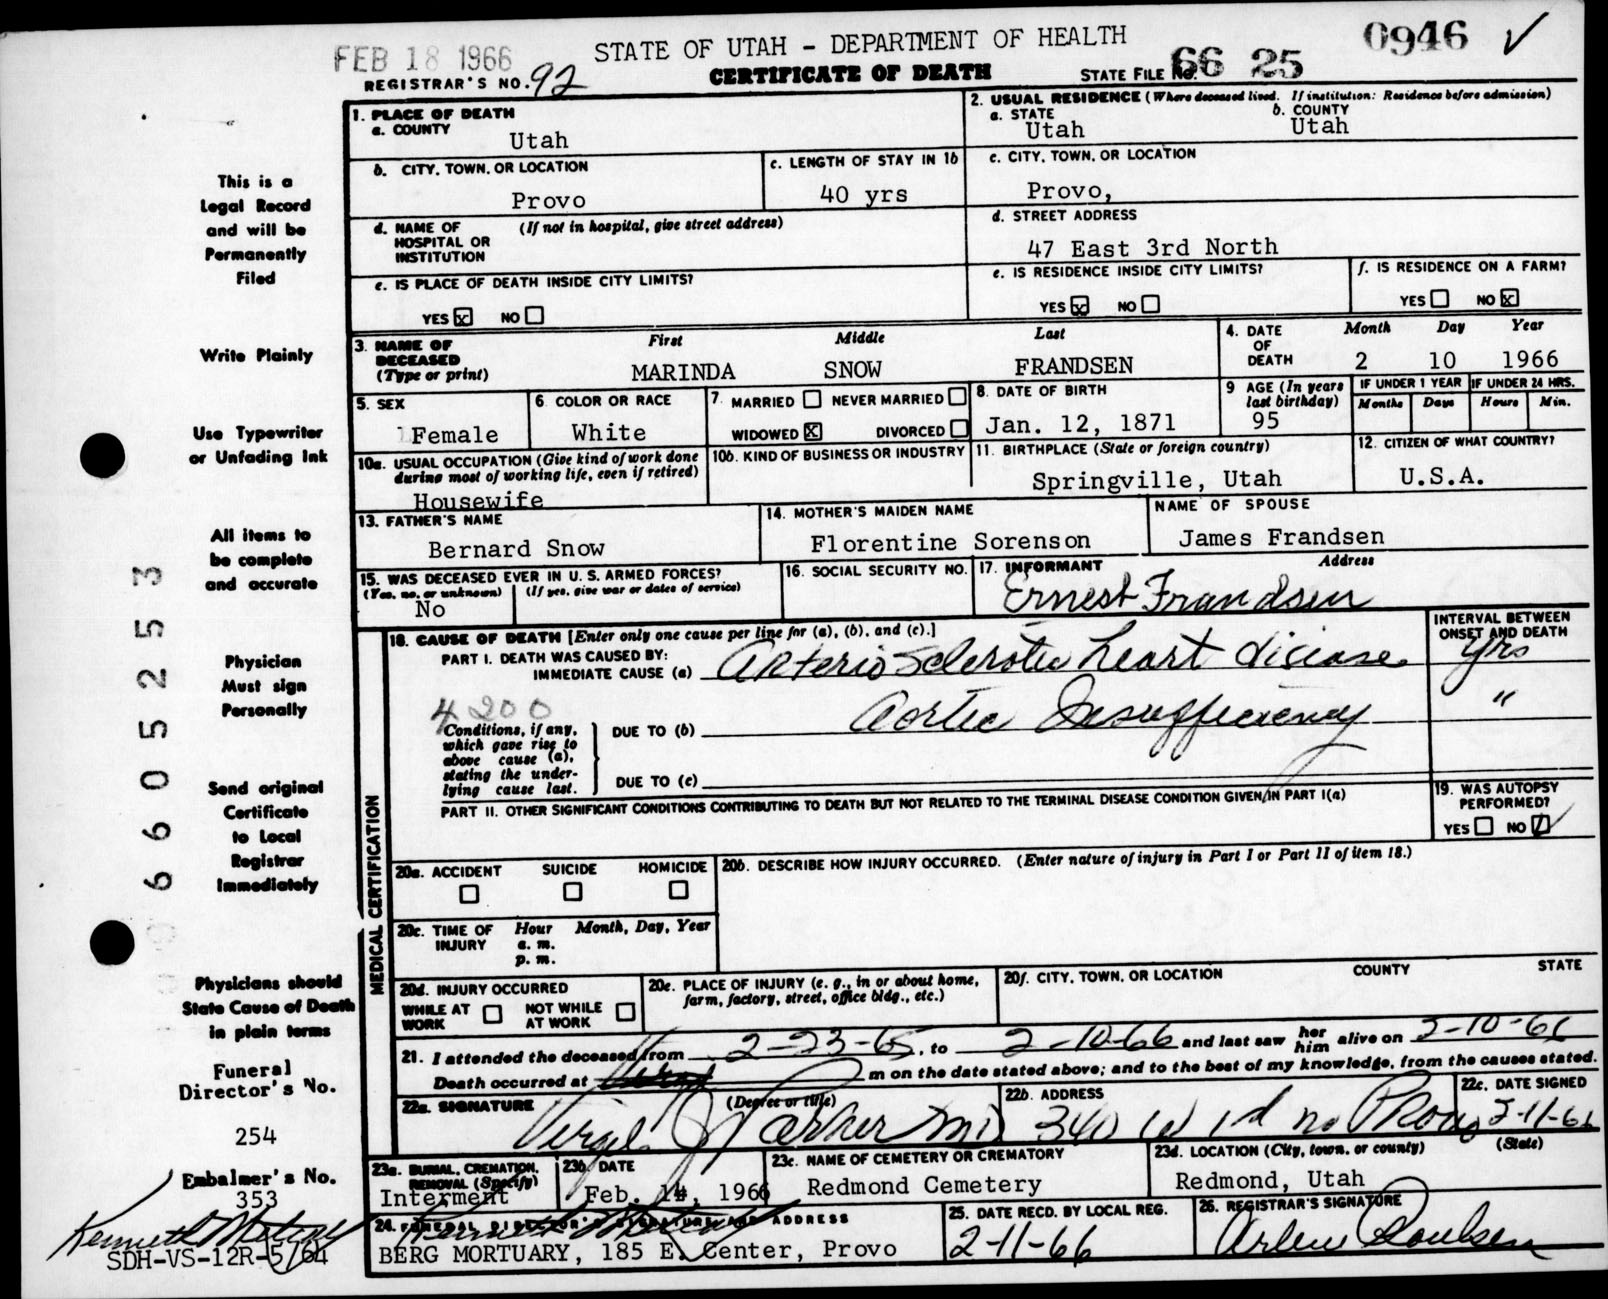 FEB 18 1966
STATE OF UTAH - DEPARTMENT OF HEALTH
0946 ✓
REGISTRAR'S NO. 92
CERTIFICATE OF DEATH
STATE FILE NO. 66 25
1. PLACE OF DEATH
a. COUNTY
Utah
2. USUAL RESIDENCE (Where deceased lived. If institution: Residence before admission)
a. STATE
Utah
b. COUNTY
Utah
b. CITY, TOWN, OR LOCATION
Provo
c. LENGTH OF STAY IN 1b
40 yrs
c. CITY, TOWN, OR LOCATION
Provo,
d. NAME OF HOSPITAL OR INSTITUTION
(If not in hospital, give street address)
d. STREET ADDRESS
47 East 3rd North
e. IS PLACE OF DEATH INSIDE CITY LIMITS?
YES x NO
e. IS RESIDENCE INSIDE CITY LIMITS?
YES x NO
f. IS RESIDENCE ON A FARM?
YES NO x
3. NAME OF DECEASED
(Type or print)
First Middle Last
MARINDA SNOW FRANDSEN
4. DATE OF DEATH
Month Day Year
2 10 1966
5. SEX
Female
6. COLOR OR RACE
White
7. MARRIED NEVER MARRIED
WIDOWED X DIVORCED
8. DATE OF BIRTH
Jan. 12, 1871
9 AGE (In years last birthday)
95
IF UNDER 1 YEAR
Months Days
IF UNDER 24 HRS.
Hours Min.
10a. USUAL OCCUPATION (Give kind of work done during most of working life, even if retired)
Housewife
10b. KIND OF BUSINESS OR INDUSTRY
11. BIRTHPLACE (State or foreign country)
Springville, Utah
12. CITIZEN OF WHAT COUNTRY?
U.S.A.
13. FATHER'S NAME
Bernard Snow
14. MOTHER'S MAIDEN NAME
Florentine Sorenson
NAME OF SPOUSE
James Frandsen
15. WAS DECEASED EVER IN U. S. ARMED FORCES?
(Yes, no, or unknown) (If yes, give war or dates of service)
No
16. SOCIAL SECURITY NO.
17. INFORMANT Address
Ernest Frandsen
MEDICAL CERTIFICATION
18. CAUSE OF DEATH [Enter only one cause per line for (a), (b), and (c).]
INTERVAL BETWEEN ONSET AND DEATH
PART I. DEATH WAS CAUSED BY:
IMMEDIATE CAUSE (a) Arterio Sclerotic heart disease yrs
4200
Conditions, if any, which gave rise to above cause (a), stating the underlying cause last.
DUE TO (b) Aortic Insufficiency "
DUE TO (c)
PART II. OTHER SIGNIFICANT CONDITIONS CONTRIBUTING TO DEATH BUT NOT RELATED TO THE TERMINAL DISEASE CONDITION GIVEN IN PART I(a)
19. WAS AUTOPSY PERFORMED?
YES NO ✓
20a. ACCIDENT SUICIDE HOMICIDE
20b. DESCRIBE HOW INJURY OCCURRED. (Enter nature of injury in Part I or Part II of item 18.)
20c. TIME OF INJURY
Hour Month, Day, Year
a. m.
p. m.
20d. INJURY OCCURRED
WHILE AT WORK NOT WHILE AT WORK
20e. PLACE OF INJURY (e. g., in or about home, farm, factory, street, office bldg., etc.)
20f. CITY, TOWN, OR LOCATION COUNTY STATE
21. I attended the deceased from 2-23-65, to 2-10-66 and last saw her him alive on 2-10-66
Death occurred at m on the date stated above; and to the best of my knowledge, from the causes stated.
22a. SIGNATURE (Degree or title)
Virgil J Parker MD
22b. ADDRESS
340 W 1st no Provo
22c. DATE SIGNED
2-11-66
23a. BURIAL, CREMATION, REMOVAL (Specify)
Interment
23b DATE
Feb. 14, 1966
23c. NAME OF CEMETERY OR CREMATORY
Redmond Cemetery
23d. LOCATION (City, town, or county) (State)
Redmond, Utah
24. FUNERAL DIRECTOR'S SIGNATURE AND ADDRESS
BERG MORTUARY, 185 E. Center, Provo
25. DATE RECD. BY LOCAL REG.
2-11-66
26. REGISTRAR'S SIGNATURE
This is a
Legal Record
and will be
Permanently
Filed
Write Plainly
Use Typewriter
or Unfading Ink
All items to
be complete
and accurate
Physician
Must sign
Personally
Send original
Certificate
to Local
Registrar
Immediately
Physicians should
State Cause of Death
in plain terms
Funeral
Director's No.
254
Embalmer's No.
353
SDH-VS-12R-5/64
66052253